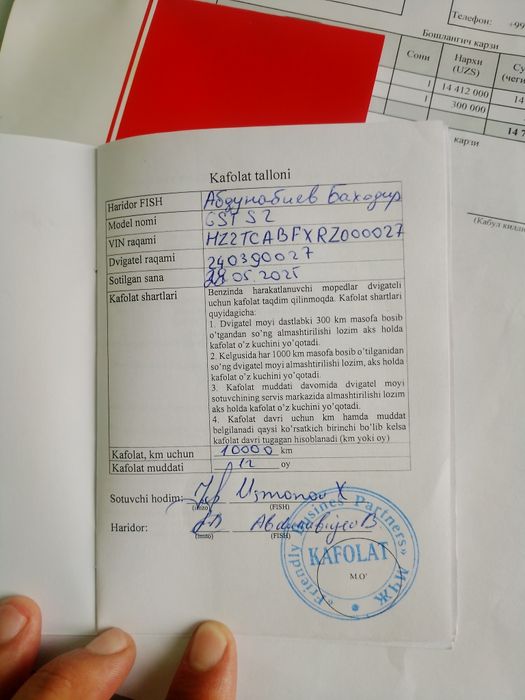 Телефон: +99
Бошланғич карзи
Сони
Нархи
(UZS)
Су
(чеги
1 14 412 000 14
1 300 000
14 7
карзи
(Кабул килди
Kafolat talloni
Haridor FISH Абдунабиев Баходир
Model nomi GST S2
VIN raqami HZ2TCABFXRZ000027
Dvigatel raqami 240390027
Sotilgan sana 28.05.2025
Kafolat shartlari Benzinda harakatlanuvchi mopedlar dvigateli
uchun kafolat taqdim qilinmoqda. Kafolat shartlari
quyidagicha:
1. Dvigatel moyi dastlabki 300 km masofa bosib
o'tgandan so'ng almashtirilishi lozim aks holda
kafolat o'z kuchini yo'qotadi.
2. Kelgusida har 1000 km masofa bosib o'tilganidan
so'ng dvigatel moyi almashtirilishi lozim, aks holda
kafolat o'z kuchini yo'qotadi.
3. Kafolat muddati davomida dvigatel moyi
sotuvchining servis markazida almashtirilishi lozim
aks holda kafolat o'z kuchini yo'qotadi.
4. Kafolat davri uchun km hamda muddat
belgilanadi qaysi ko'rsatkich birinchi bo'lib kelsa
kafolat davri tugagan hisoblanadi (km yoki oy)
Kafolat, km uchun 10000 km
Kafolat muddati 12 oy
Sotuvchi hodim: Usmonov X
(imzo) (FISH)
Haridor:
(imzo) (FISH)
«Friendly Busines Partners» МЧЖ
KAFOLAT
M.O'